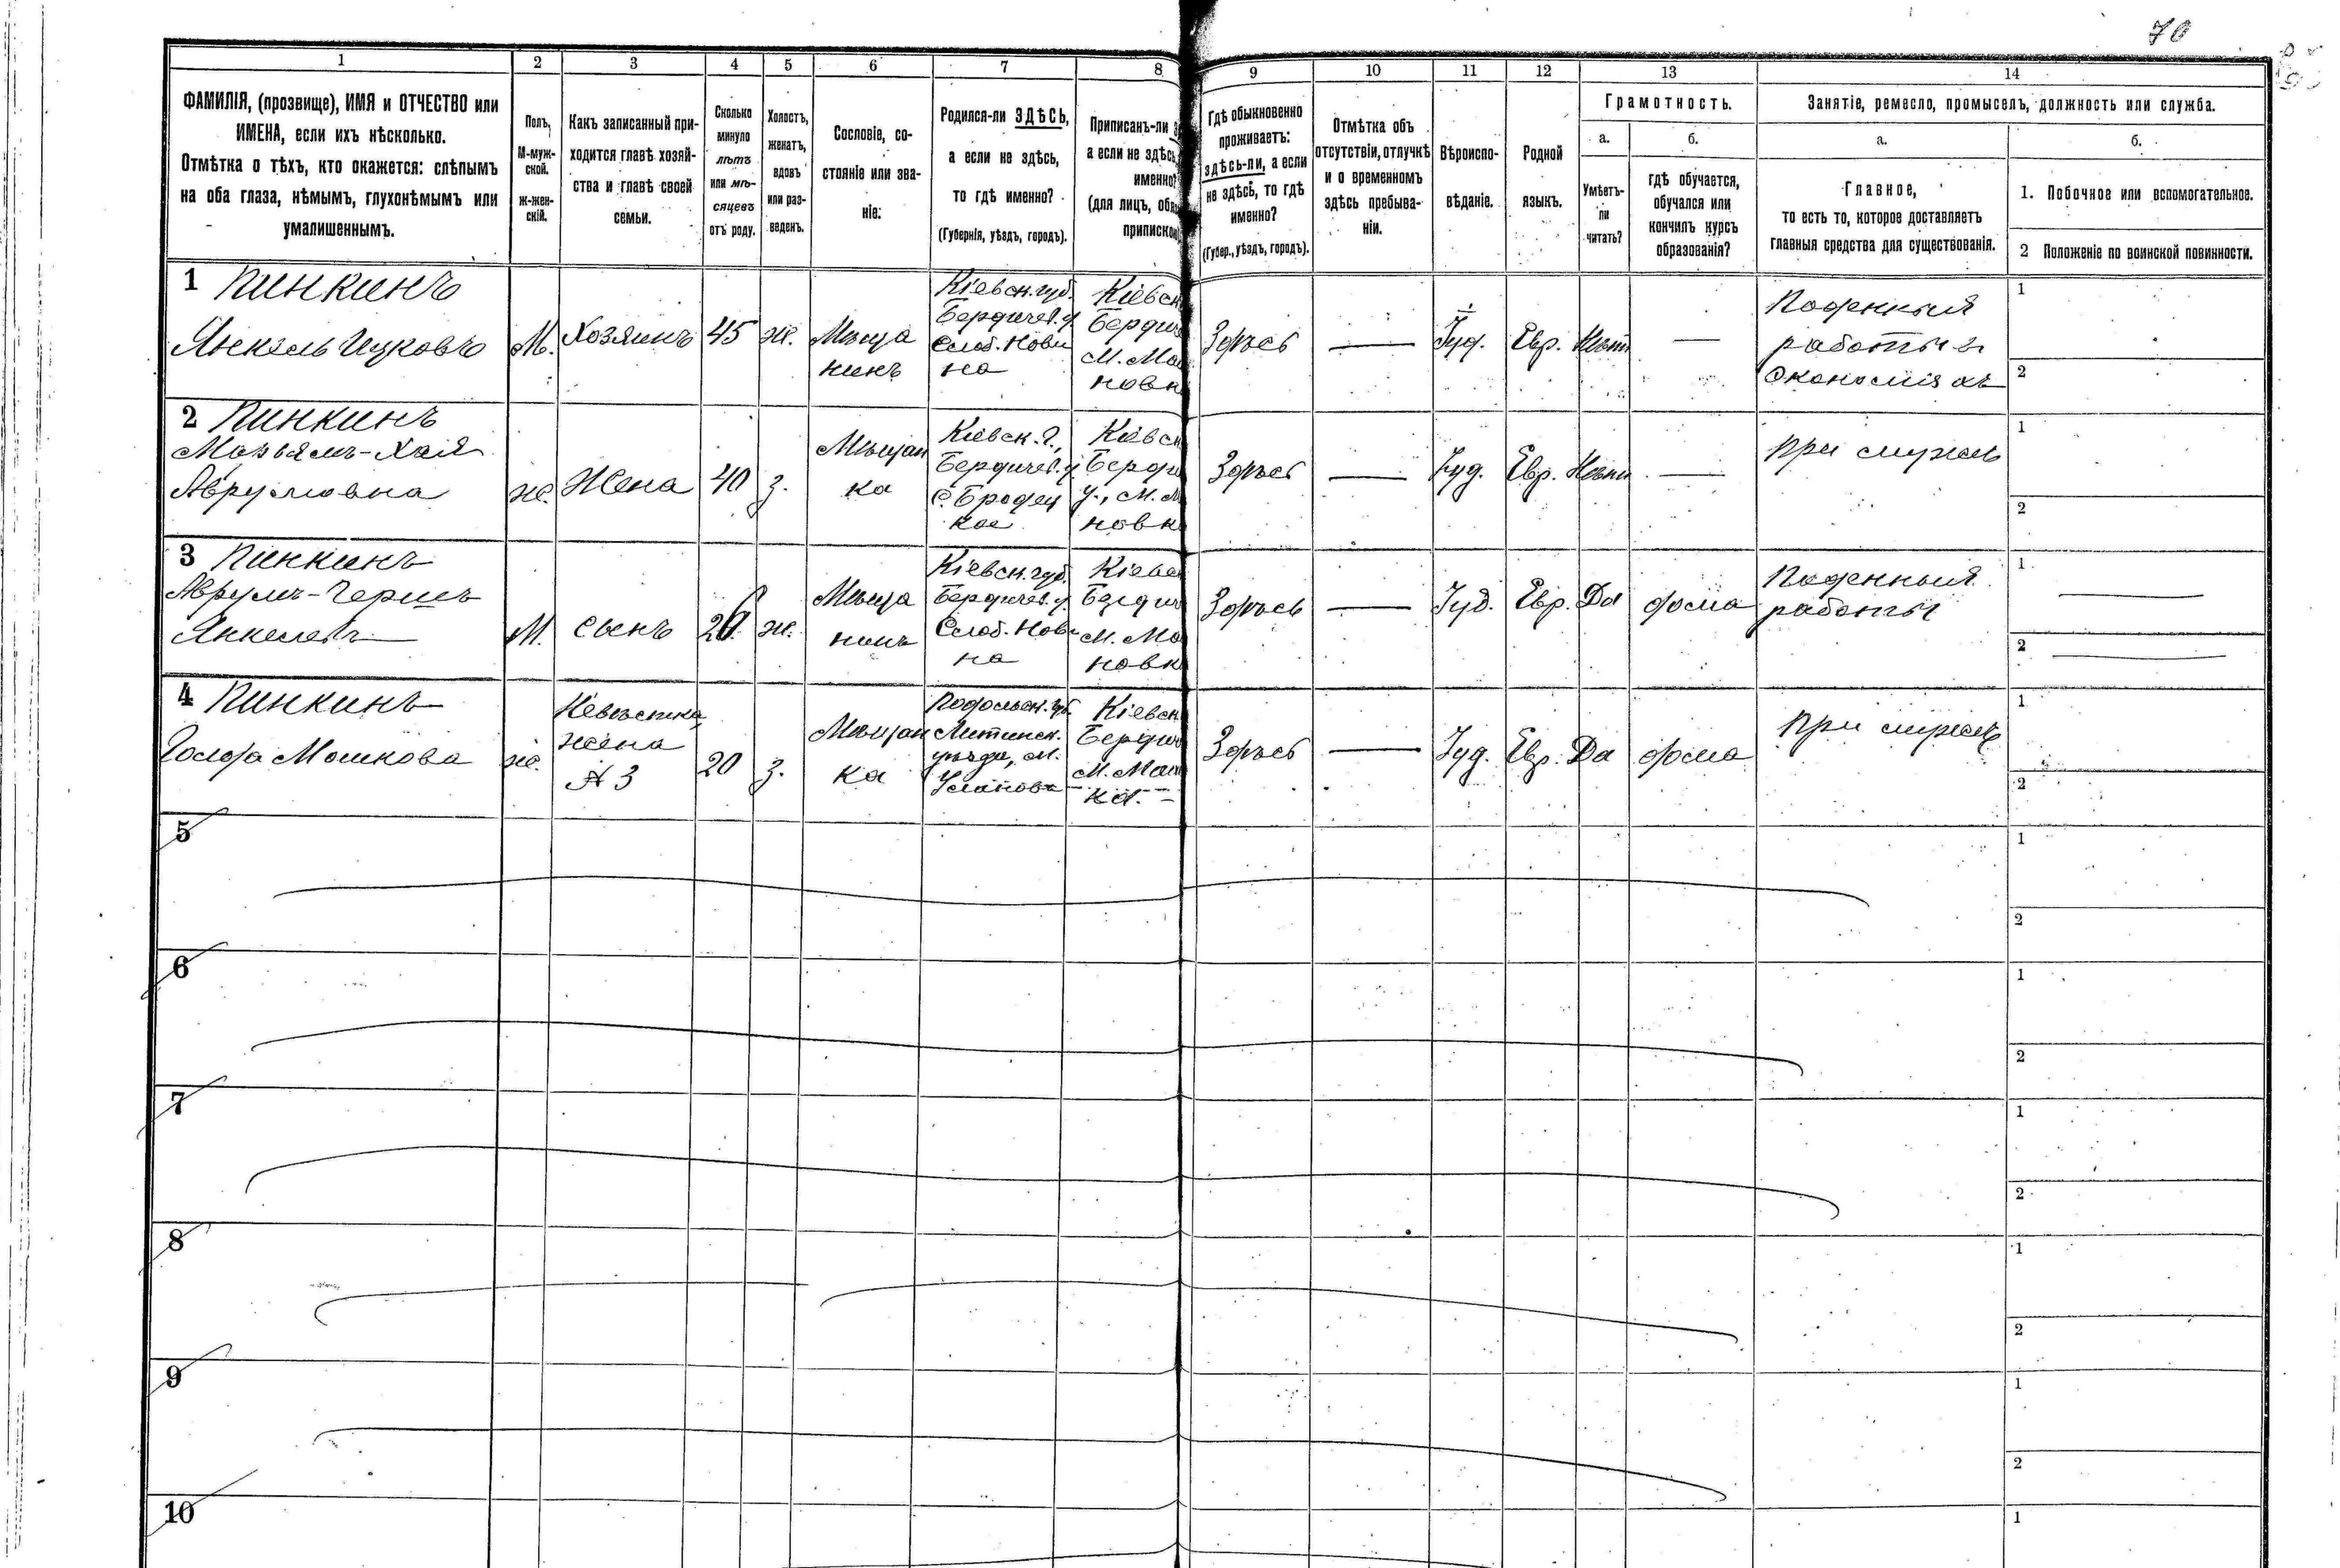 70
1
2
3
4
5
6
7
8
9
10
11
12
13
14
ФАМИЛІЯ, (прозвище), ИМЯ и ОТЧЕСТВО или
ИМЕНА, если ихъ нѣсколько.
Отмѣтка о тѣхъ, кто окажется: слѣпымъ
на оба глаза, нѣмымъ, глухонѣмымъ или
умалишеннымъ.
Полъ,
М-муж-
ской.
Ж-жен-
скій.
Какъ записанный при-
ходится главѣ хозяй-
ства и главѣ своей
семьи.
Сколько
минуло
лѣтъ
или мѣ-
сяцевъ
отъ роду.
Холостъ,
женатъ,
вдовъ
или раз-
веденъ.
Сословіе, со-
стояніе или зва-
ніе:
Родился-ли ЗДѢСЬ,
а если не здѣсь,
то гдѣ именно?
(Губернія, уѣздъ, городъ).
Приписанъ-ли
а если не здѣсь
именно?
(для лицъ, обя
припиской
Гдѣ обыкновенно
проживаетъ:
здѣсь-ли, а если
не здѣсь, то гдѣ
именно?
(Губер., уѣздъ, городъ).
Отмѣтка объ
отсутствіи, отлучкѣ
и о временномъ
здѣсь пребыва-
ніи.
Вѣроиспо-
вѣданіе.
Родной
языкъ.
Грамотность.
а.
Умѣетъ-
ли
читать?
б.
гдѣ обучается,
обучался или
кончилъ курсъ
образованія?
Занятіе, ремесло, промыселъ, должность или служба.
а.
Главное,
то есть то, которое доставляетъ
главныя средства для существованія.
б.
1. Побочное или вспомогательное.
2 Положеніе по воинской повинности.
1 Пинкинъ
Янкель Ицковъ
М.
Хозяинъ
45
ж.
Мѣща
нинъ
Кіевск. губ.
Бердичев. у.
Слоб. Нови
на
Кіевск
Бердич
м. Ма
новк
Здѣсь
Іуд.
Евр.
Нѣтъ
Поденныя
работы в
Экономіяхъ
1
2
2 Пинкинъ
Марьямъ-Хая
Аврумовна
ж.
Жена
40
з.
Мѣщан
ка
Кіевск. г.,
Бердичев. у
С. Бродец
кое
Кіевск
Берди
у., м. М
новк
Здѣсь
Іуд.
Евр.
Нѣтъ
при мужѣ
1
2
3 Пинкинъ
Аврумъ-Гершъ
Янкелевъ
М.
сынъ
ж.
Мѣща
нинъ
Кіевск. губ.
Бердичев. у.
Слоб. Нови
на
Кіевс
Бердич
м. Ма
новк
Здѣсь
Іуд.
Евр.
Да
дома
Поденныя
работы
1
2
4 Пинкинъ
Голда Мошкова
ж.
Невѣстка
жена
№ 3
20
з.
Мѣщан
ка
Подольск. губ.
Литинск.
уѣзда, м.
Улановъ
Кіевск
Бердич
м. Мах
ка.
Здѣсь
Іуд.
Евр.
Да
дома
при мужѣ
1
2
5
1
2
6
1
2
7
1
2
8
1
2
9
1
2
10
1